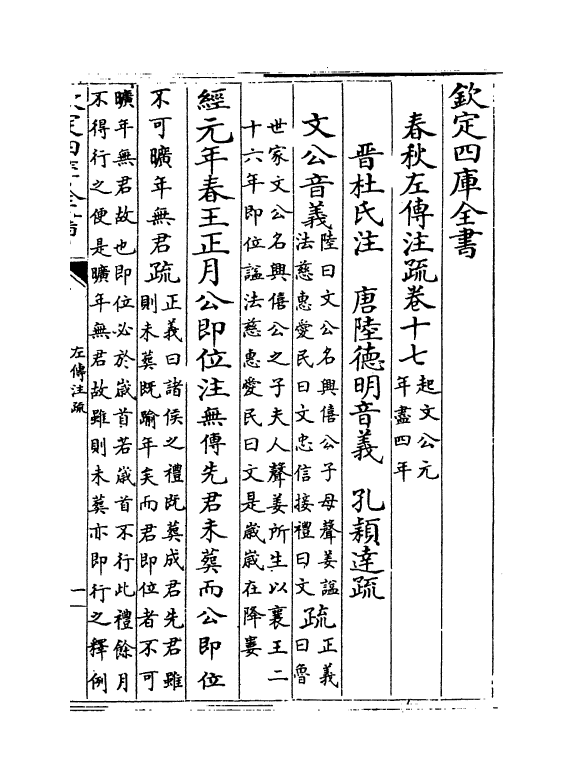 欽定四庫全書
春秋左傳注疏卷十七
起文公元
年盡四年
晋杜氏注 唐陸德明音義 孔穎達疏
文公音義
陸曰文公名興僖公子母聲姜謚
法慈惠愛民曰文忠信接禮曰文
疏
正義
曰魯
世家文公名興僖公之子夫人聲姜所生以襄王二
十六年即位謚法慈惠愛民曰文是歲歲在降婁
經元年春王正月公即位注無傳先君未葬而公即位
不可曠年無君疏
正義曰諸侯之禮既葬成君先君雖
則未葬既踰年矣而君即位者不可
曠年無君故也即位必於歲首若歲首不行此禮餘月
不得行之便是曠年無君故雖則未葬亦即行之釋例
左傳注疏
一